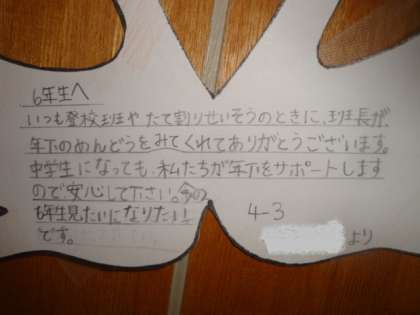 6年生へ
いつも登校班やたて割りせいそうのときに、班長が、
年下のめんどうをみてくれてありがとうございます。
中学生になっても、私たちが年下をサポートします
ので安心して下さい。今の
6年生見たいになりたい
です。
4-3
より